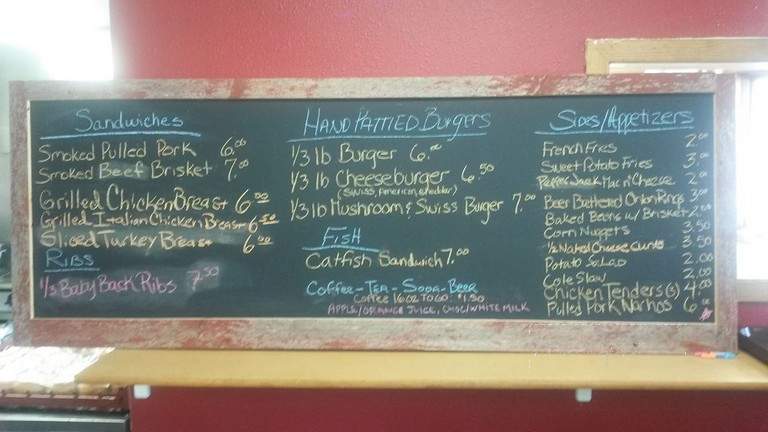 Sandwiches
Smoked Pulled Pork 6.00
Smoked Beef Brisket 7.00
Grilled Chicken Breast 6.50
Grilled Italian Chicken Breast 6.50
Sliced Turkey Breast 6.00
Ribs
1/3 Baby Back Ribs 7.50
Hand Pattied Burgers
1/3 lb Burger 6.00
1/3 lb Cheeseburger 6.50
(Swiss, American, Cheddar)
1/3 lb Mushroom & Swiss Burger 7.00
Fish
Catfish Sandwich 7.00
Coffee - Tea - Soda - Beer
Coffee 16oz To Go: $1.50
Apple/Orange Juice, Choc/White Milk
Sides/Appetizers
French Fries 2.00
Sweet Potato Fries 3.00
Pepper Jack Mac n' Cheese 2.00
Beer Battered Onion Rings 3.00
Baked Beans w/ Brisket 2.00
Corn Nuggets 3.50
1/2 Naked Cheese Curds 3.50
Potato Salad 2.00
Cole Slaw 2.00
Chicken Tenders (3) 4.00
Pulled Pork Nachos 6.00